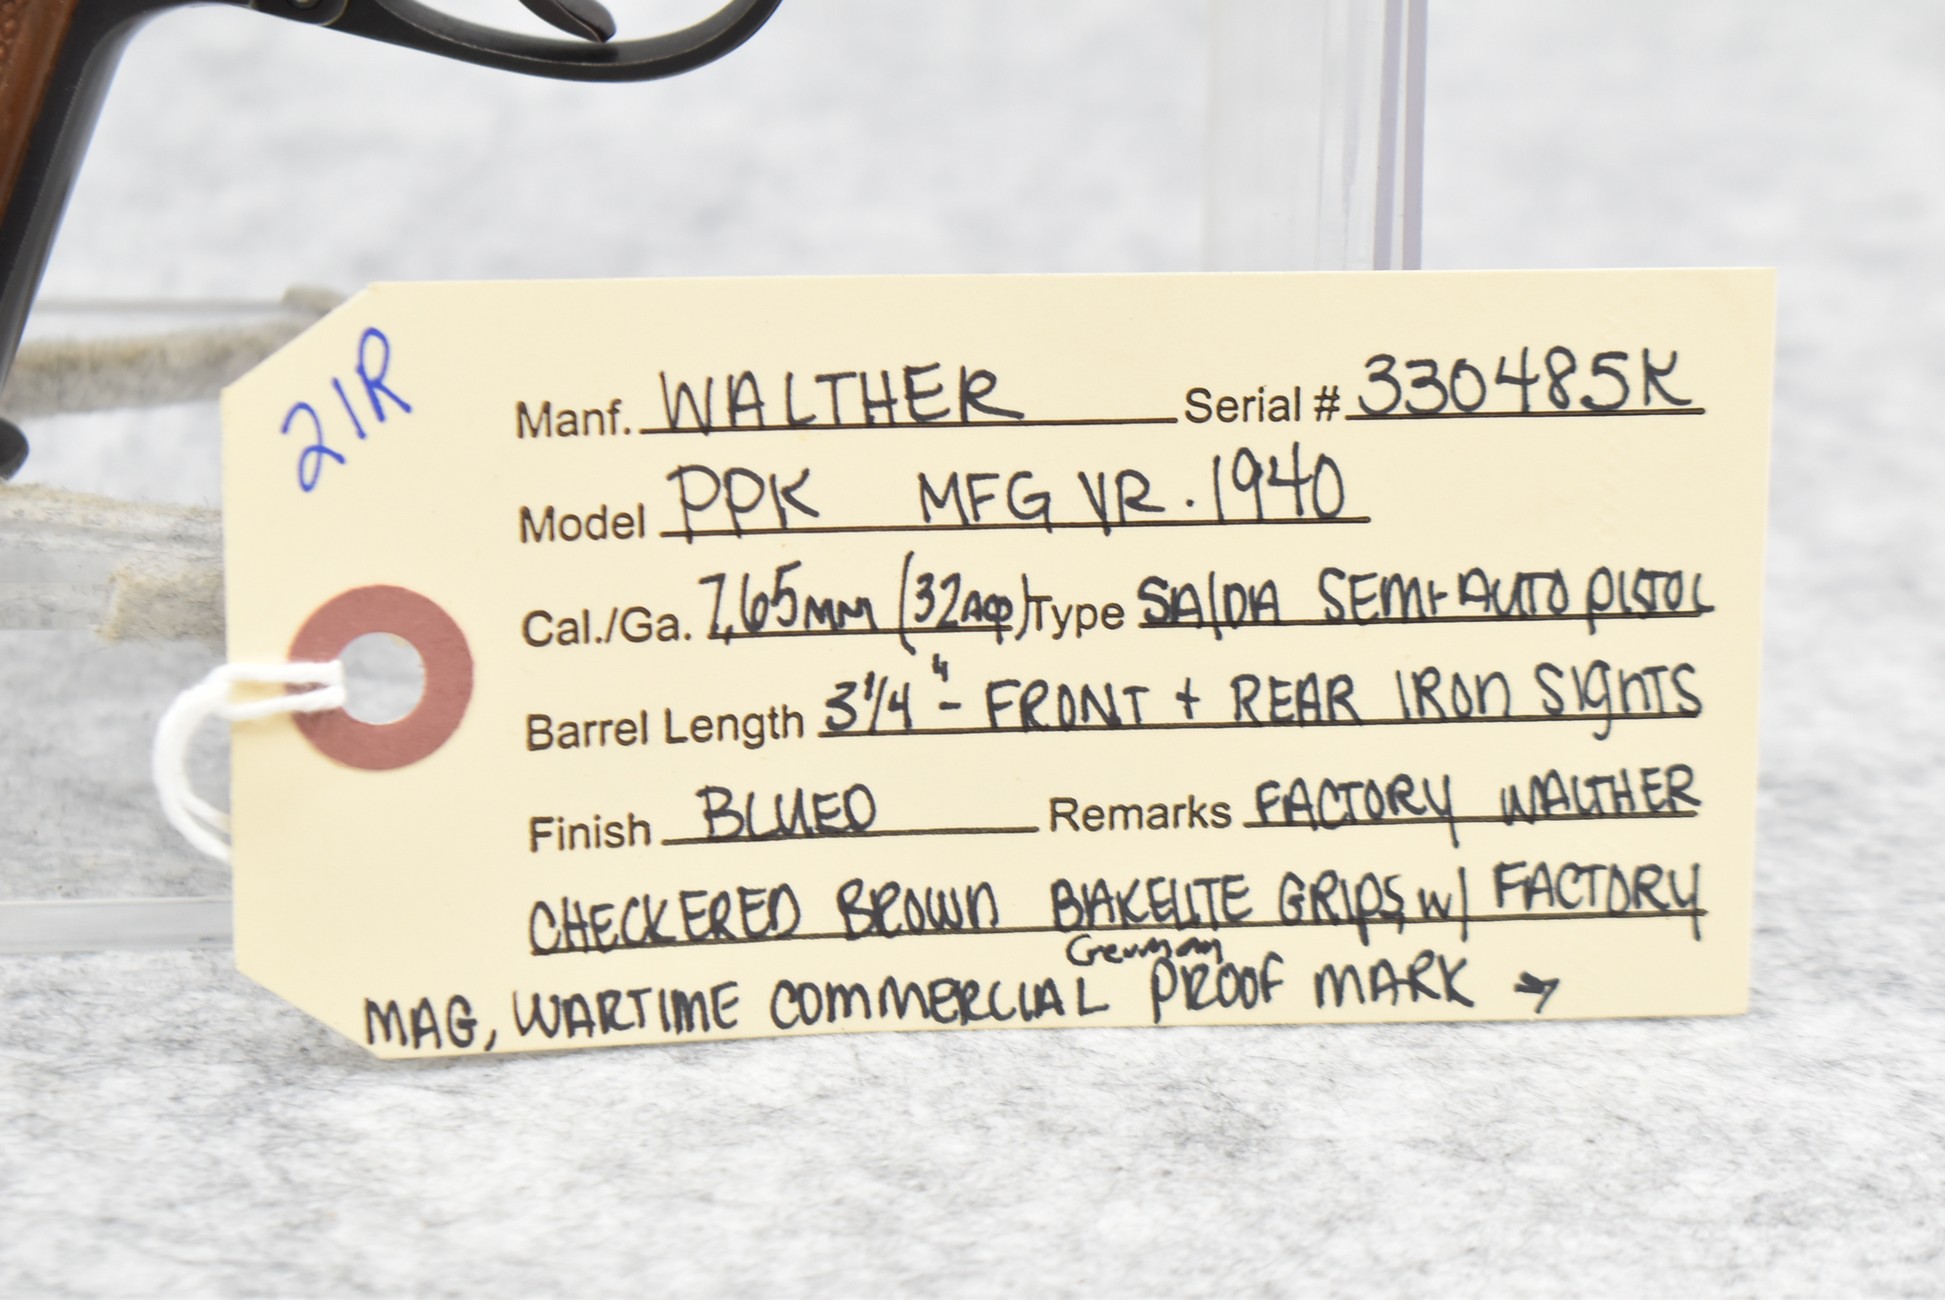 21R
Manf. WALTHER Serial # 330485K
Model PPK MFG YR. 1940
Cal./Ga. 7,65MM (32ACP) Type SA/DA SEMI-AUTO PISTOL
Barrel Length 3 1/4" - FRONT + REAR IRON SIGHTS
Finish BLUED Remarks FACTORY WALTHER
CHECKERED BROWN BAKELITE GRIPS W/ FACTORY
German
MAG, WARTIME COMMERCIAL PROOF MARK →